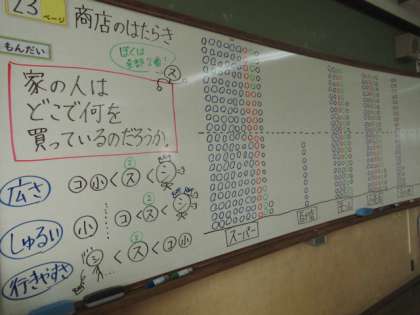 23
ページ
商店のはたらき
もんだい
ぼくは
全部2番!
ス
家の人は
どこで何を
買っているのだろうか。
広さ
コ 小 < ス < シ
しゅるい
小 コ < ス < シ
行きやすさ
シ < ス < コ 小
スーパー